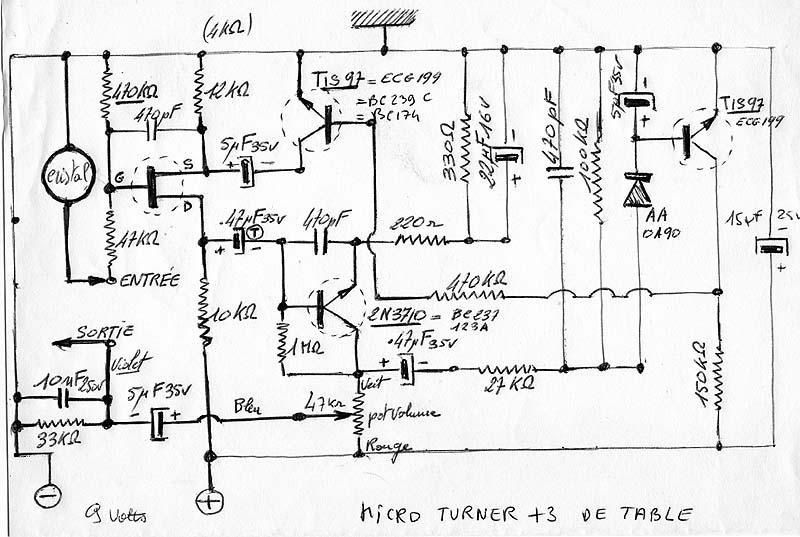 (4KΩ)
TIS97 = ECG199
= BC239 C
= BC174
TIS97
ECG199
470KΩ
470pF
12KΩ
5µF35V
-
+
cristal
G
S
D
5µF35V
+ -
330Ω
22µF16V
-
+
470pF
100KΩ
AA
OA90
15µF 25V
-
+
47KΩ
ENTRÉE
.47µF35V
+ T -
470pF
220Ω
470KΩ
2N3710 = BC237
123A
10KΩ
1MΩ
.47µF35V
+ -
27KΩ
150KΩ
SORTIE
Violet
10nF250V
5µF35V
- +
Bleu
47KΩ
Vert
pot Volume
33KΩ
Rouge
-
+
9 Volts
MICRO TURNER +3 DE TABLE